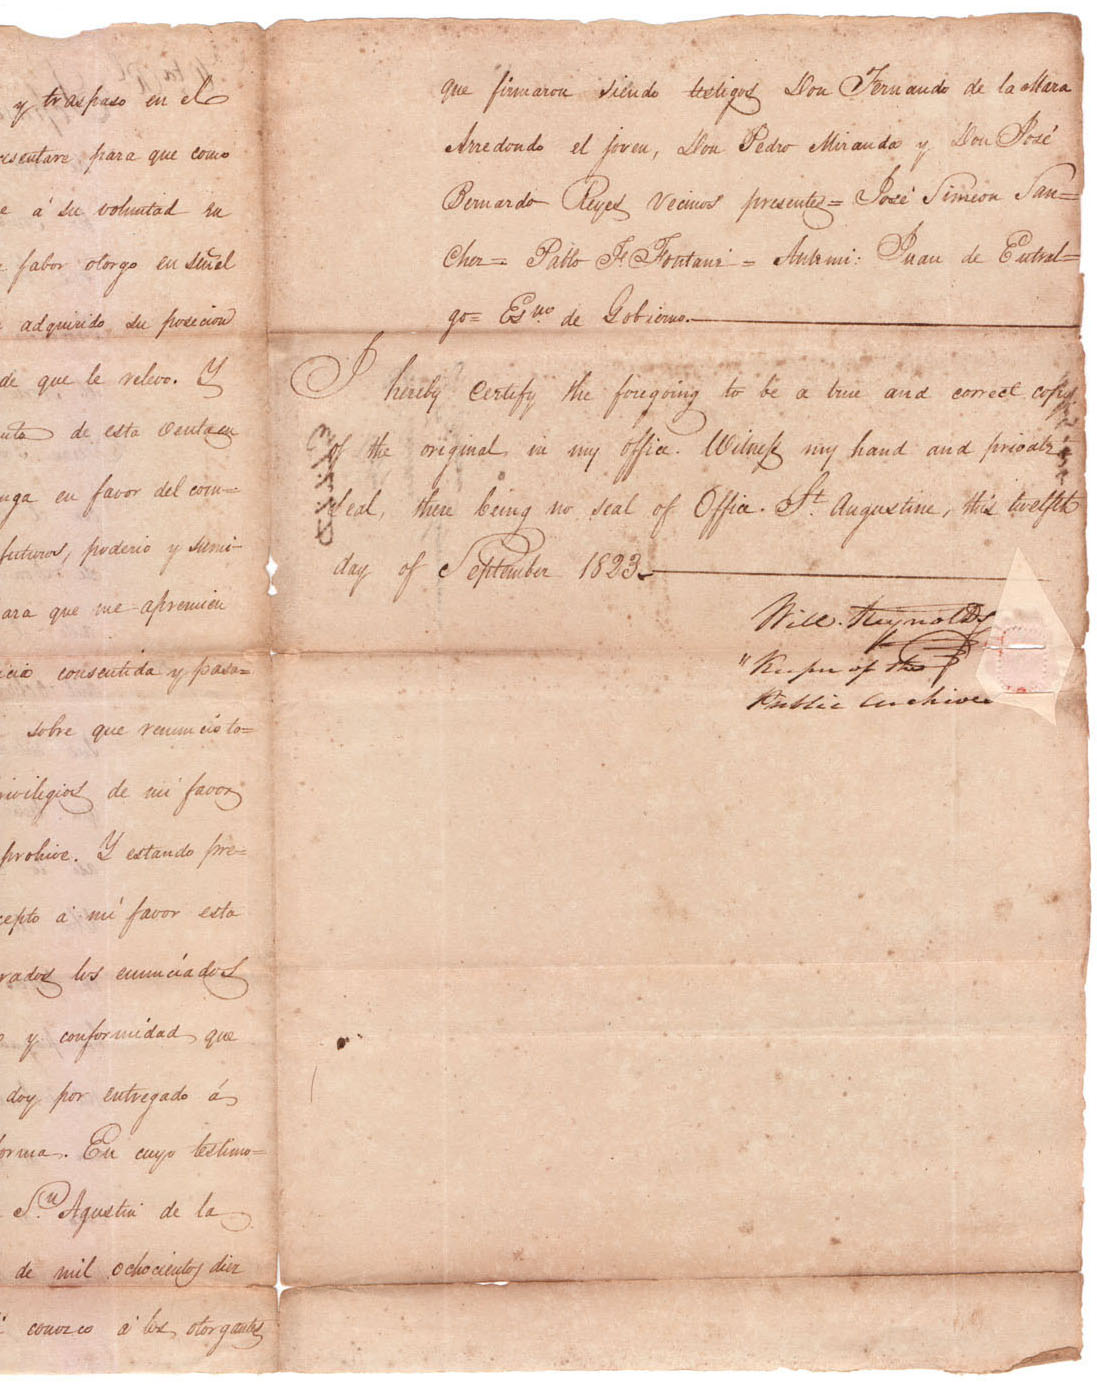 y traspaso en el
para que como
á su voluntad en
fabor otorgo en señal
adquirido su posecion
de que le relevo. Y
de esta Venta en
en favor del com=
futuros, poderio y sumi-
para que me apremien
consentida y pasa=
sobre que renuncio to=
de mi favor
prohive. Y estando pre=
á mi favor esta
los enunciados
y conformidad que
doy por entregado á
forma. En cuyo testimo=
S.n Agustin de la
de mil ochocientos diez
conozco á los otorgantes
que firmaron siendo testigos Don Fernando de la Maza
Arredondo el joven, Don Pedro Miranda y Don José
Bernardo Reyes vecinos presentes= José Simeon San=
chez= Pablo F. Fontane = Antemi: Juan de Entral=
go= Es.no de Gobierno.
I hereby certify the foregoing to be a true and correct copy
of the original in my office. Witness my hand and private
seal, there being no seal of Office. St. Augustine, this twelfth
day of September 1823.
Will. Reynolds
"Keeper of the
Public Archives